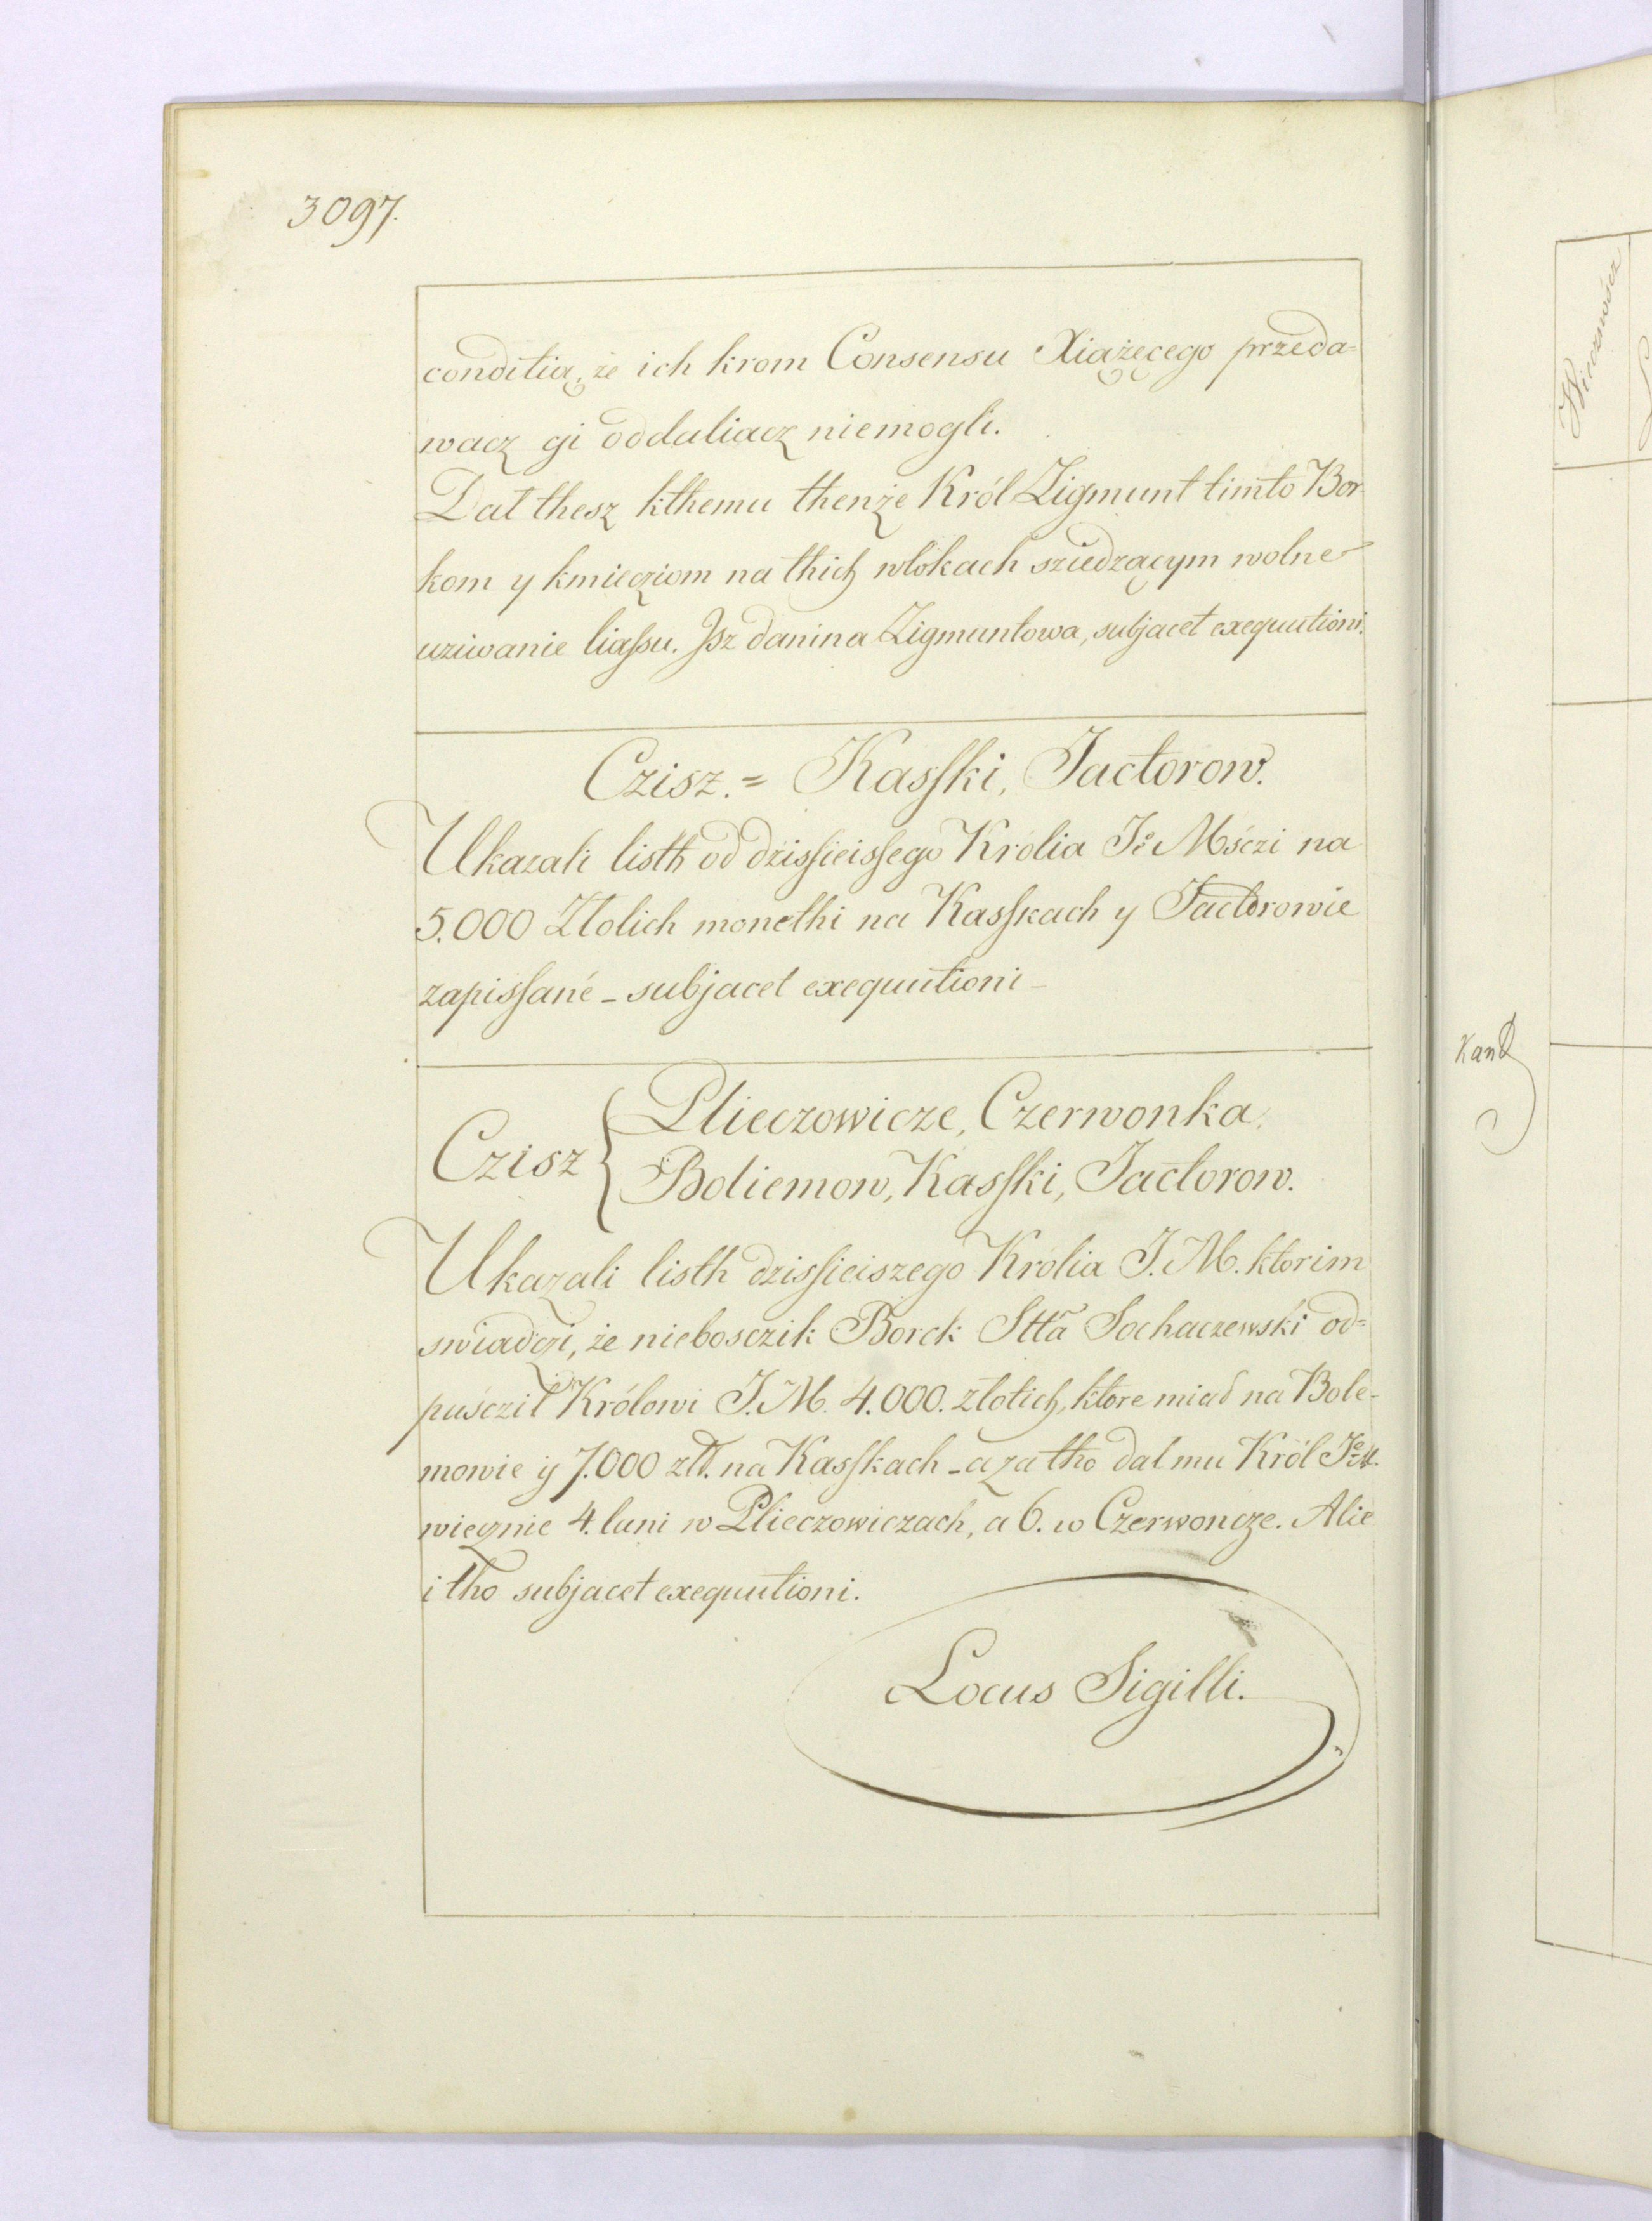 3097.
conditią, że ich krom Consensu Xiążęcego przeda=
wacz gi oddaliacz niemogli.
Dał thesz kthemu thenże Król Zigmunt timto Bor-
kom y kmiecziom na thich włokach sziedzącym wolne
uziwanie liassu. Jsz danina Zigmuntowa, subjacet exequutioni.
Czisz.= Kasski, Jactorow.
Ukazali listh od dzissieissego Królia Jº Mśczi na
5.000 Złotich monethi na Kasskach y Jactorowie
zapissané - subjacet exequutioni -
Czisz { Plieczowicze, Czerwonka,
Boliemow, Kasski, Jactorow.
Ukazali listh dzissieiszego Królia J. M. ktorim
swiadczi, że niebosczik Borck Sttã Sochaczewski od=
puśczil Królowi J. M. 4.000. złotich, ktore miał na Bole-
mowie y 7.000 złł. na Kasskach - a za tho dal mu Król Jº M.
wiecznie 4. łani w Plieczowiczach, a 6. w Czerwoncze. Alie
i tho subjacet exequutioni.
Locus Sigilli.